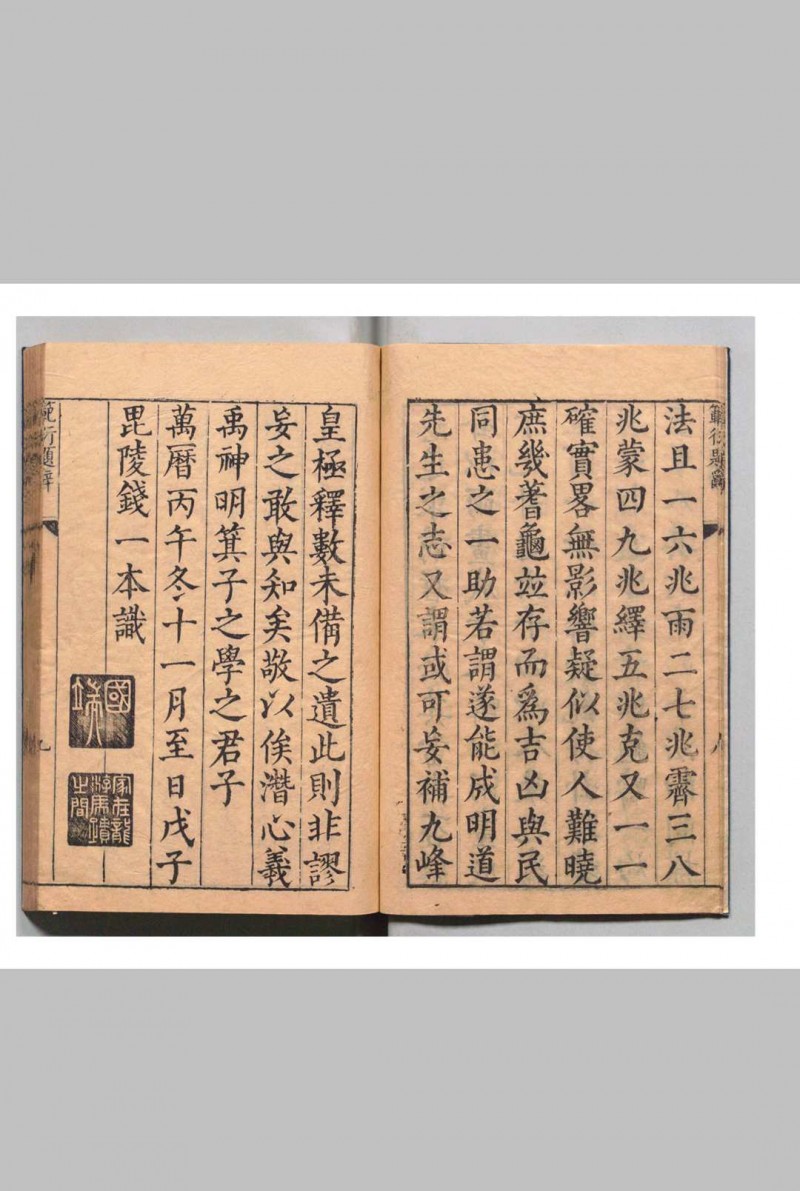 範衍題辭
法且一六兆雨二七兆霽三八
兆蒙四九兆繹五兆克又一一
確實畧無影響疑似使人難曉
庶幾蓍龜並存而爲吉凶與民
同患之一助若謂遂能成明道
先生之志又謂或可妄補九峰
八
皇極釋數未備之遺此則非謬
妄之敢與知矣敬以俟潛心羲
禹神明箕子之學之君子
萬曆丙午冬十一月至日戊子
毘陵錢一本識
國端
家在龍游馬蹟之間
範衍題辭
九